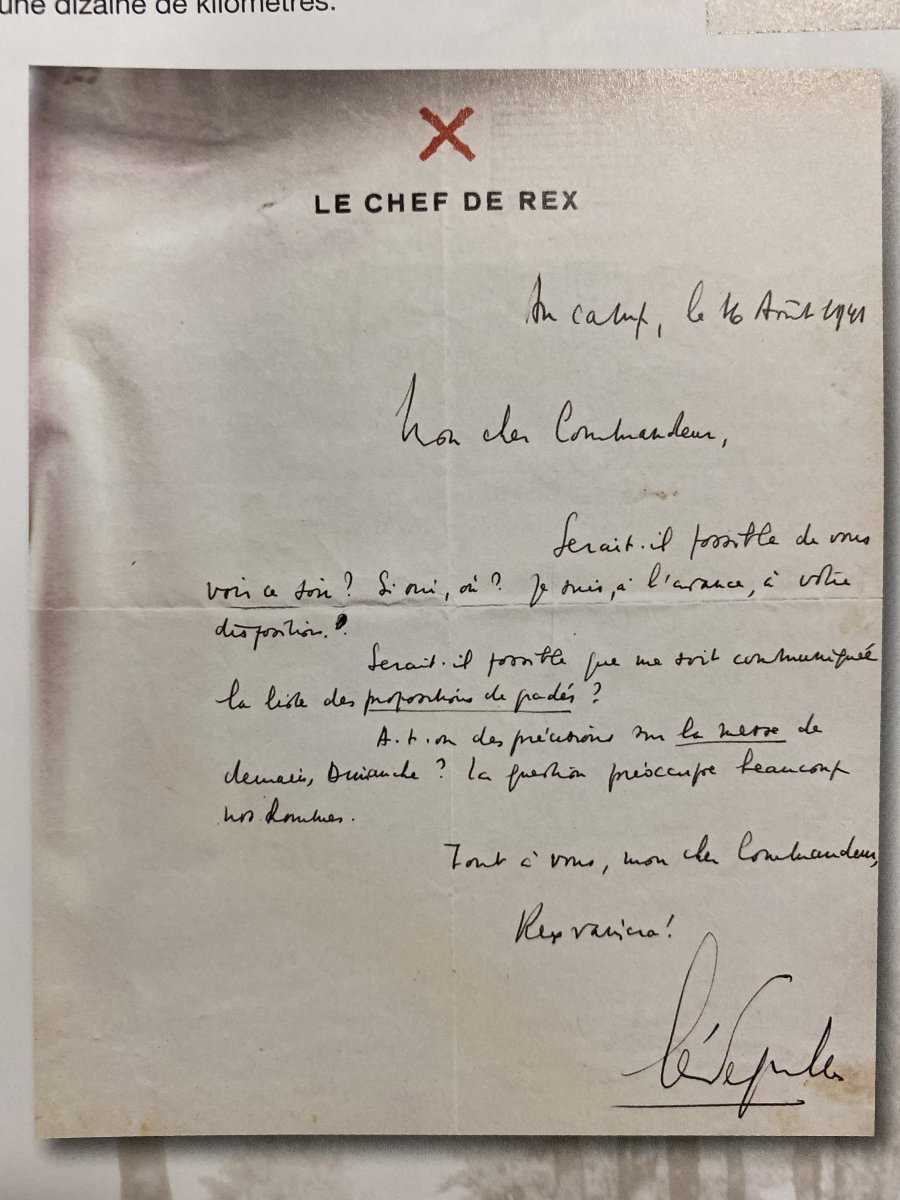 une dizaine de kilomètres.
LE CHEF DE REX
Au camp, le 16 Août 1941
Mon cher Commandeur,
Serait-il possible de vous
voir ce soir ? Si oui, où ? Je suis, à l'avance, à votre
disposition.
Serait-il possible que me soit communiquée
la liste des propositions de gradés ?
A-t-on des précisions sur la messe de
demain, Dimanche ? La question préoccupe beaucoup
nos hommes.
Tout à vous, mon cher Commandeur,
Rex vaincra !